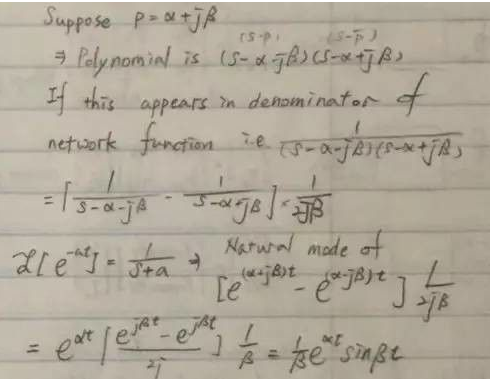 Suppose p = α + jβ
(s-p) (s-p̄)
⇒ Polynomial is (s-α-jβ)(s-α+jβ)
If this appears in denominator of
network function i.e. 1/((s-α-jβ)(s-α+jβ))
= [1/(s-α-jβ) - 1/(s-α+jβ)] × 1/(2jβ)
ℒ[e^(-at)] = 1/(s+a) ⇒ Natural mode of
[e^((α+jβ)t) - e^((α-jβ)t)] 1/(2jβ)
= e^(αt) [(e^(jβt) - e^(jβt))/(2j)] 1/β = 1/β e^(αt) sinβt